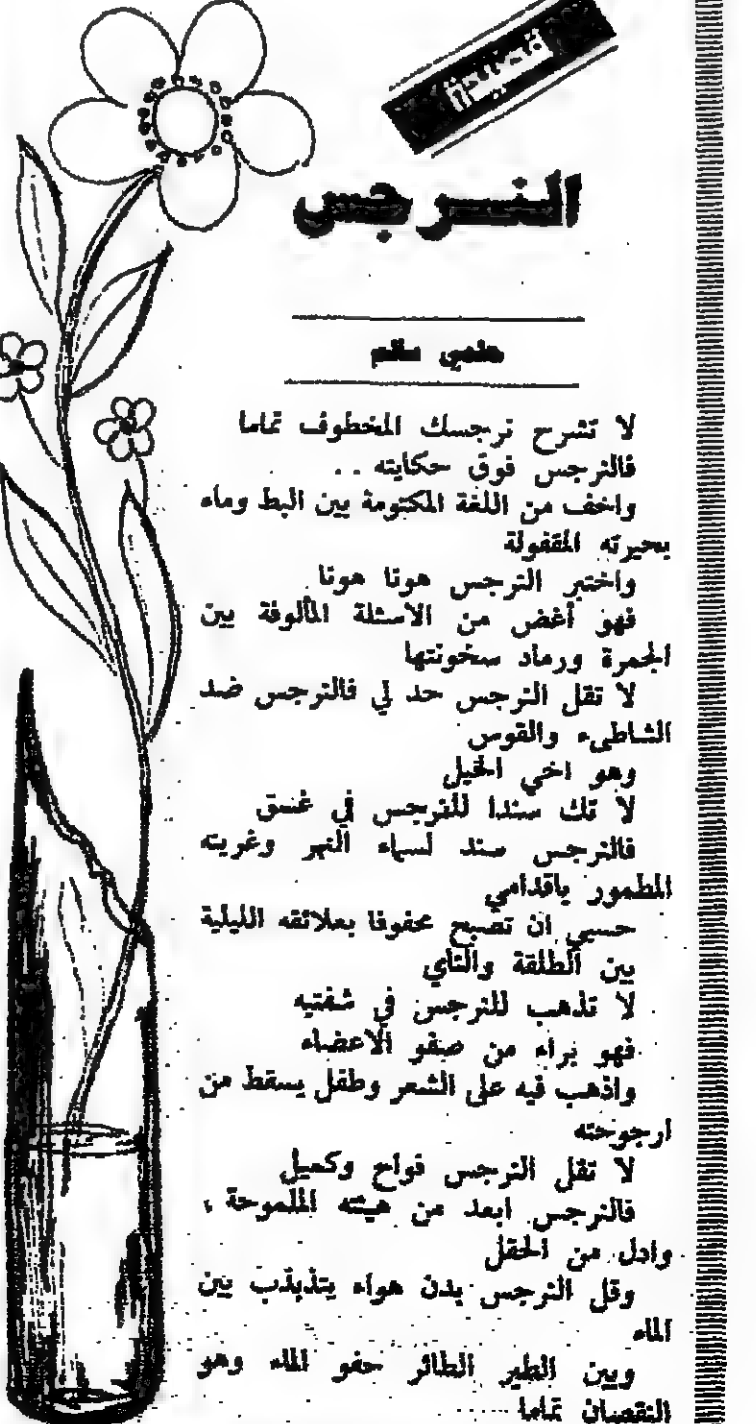 قصيدة
النرجس
حلمي سالم
لا تشرح نرجسك المخطوف تماما
فالنرجس فوق حكايته ..
واخف من اللغة المكتومة بين البط وماء
بحيرته المقفولة
واختبر النرجس هونا هونا
فهو أغض من الاسئلة المألوفة بين
الجمرة ورماد سخونتها
لا تقل النرجس حد لي فالنرجس ضد
الشاطىء والقوس
وهو اخي الخيل
لا تك سندا للنرجس في غسق
فالنرجس سند لسماء النهر وغريته
المطمور باقدامي
حسبي ان تصبح محفوفا بعلائقه الليلية
بين الطلقة والناي
لا تذهب للنرجس في شفتيه
فهو براء من صفو الاعضاء
واذهب فيه على الشعر وطفل يسقط من
ارجوحته
لا تقل النرجس فواح وكحيل
فالنرجس ابعد من هيئته الملموحة ،
وادل من الحقل
وقل النرجس بدن هواء يتذبذب بين
الماء
وبين الطير الطائر حفو الماء وهو
النقصان تماما